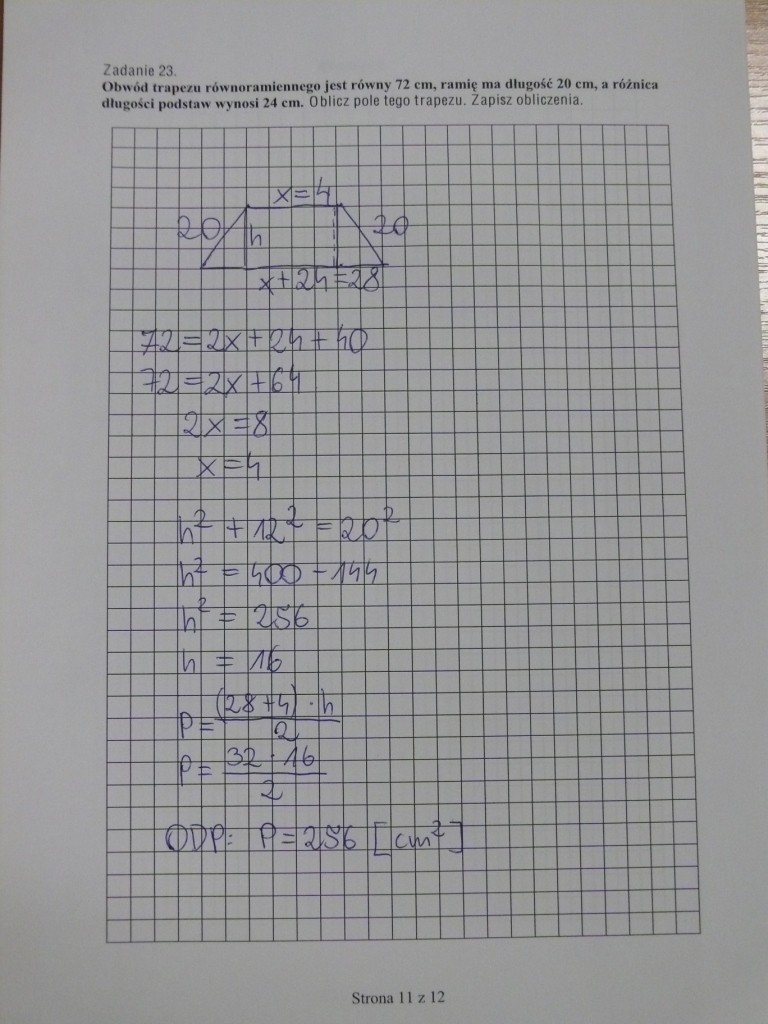 Zadanie 23.
Obwód trapezu równoramiennego jest równy 72 cm, ramię ma długość 20 cm, a różnica
długości podstaw wynosi 24 cm. Oblicz pole tego trapezu. Zapisz obliczenia.
x=4
20 h 20
x+24=28
72=2x+24+40
72=2x+64
2x=8
x=4
h² + 12² = 20²
h² = 400 - 144
h² = 256
h = 16
P = (28+4)·h / 2
P = 32·16 / 2
ODP: P=256 [cm²]
Strona 11 z 12